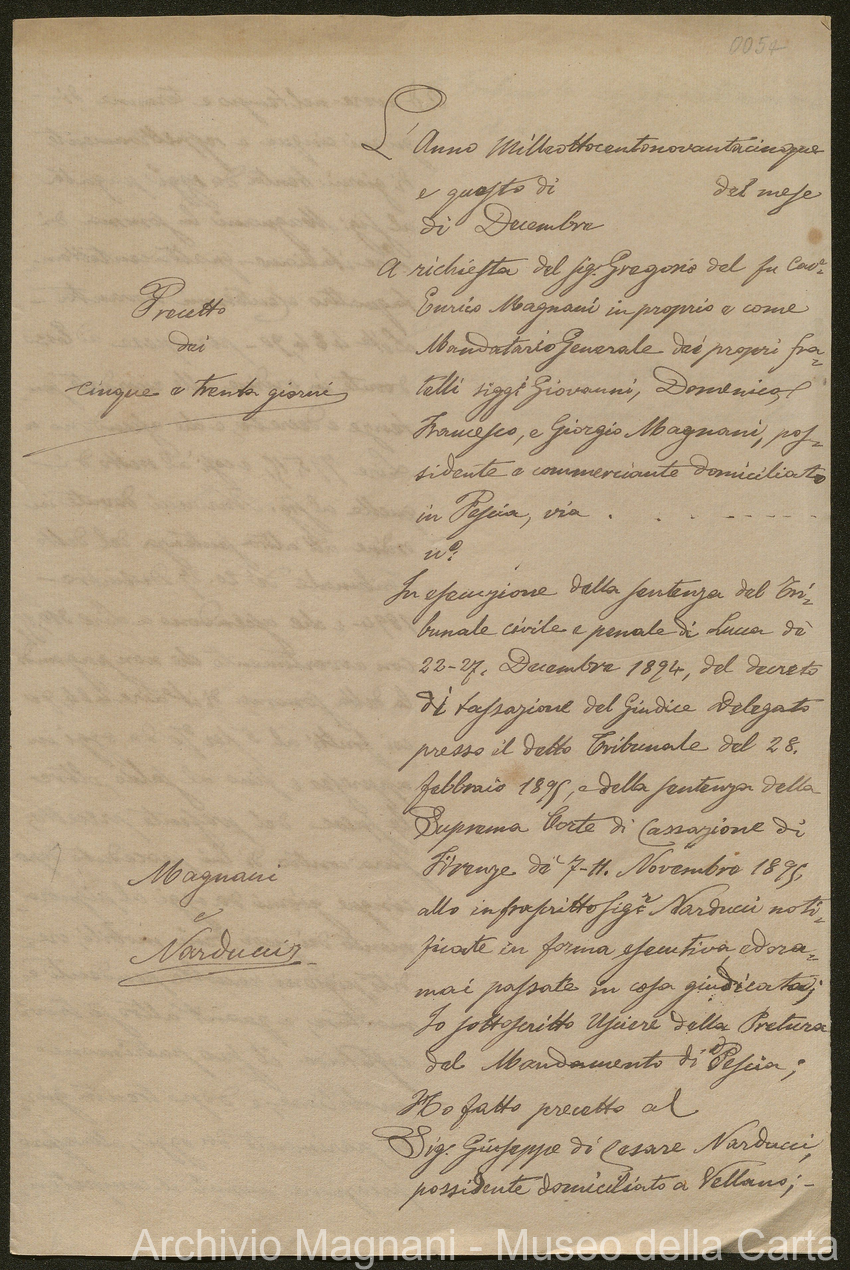 0054
L'Anno Milleottocentonovantacinque
e questo di del mese
di Decembre
A richiesta del sig. Gregorio del fu Cav.e
Enrico Magnani in proprio e come
Mandatario Generale dei propri fra-
telli sigg.i Giovanni, Domenico,
Francesco, e Giorgio Magnani, pos-
sidente e commerciante domiciliato
in Pescia, via . . . - - - - - -
n.o
In esecuzione della sentenza del Tri-
bunale civile e penale di Lucca de
22-27. Decembre 1894, del decreto
di tassazione del Giudice Delegato
presso il detto Tribunale del 28.
febbraio 1895, e della sentenza della
Suprema Corte di Cassazione di
Firenze de' 7-11. Novembre 1895,
allo infrascritto Sig.r Narducci noti-
ficate in forma esecutiva, ed ora-
mai passate in cosa giudicata;
Io sottoscritto Usciere della Pretura
del Mandamento di Pescia;
Ho fatto precetto al
Sig. Giuseppe di Cesare Narducci,
possidente domiciliato a Vellano; -
Precetto
dei
cinque e trenta giorni
Magnani
e
Narducci
Archivio Magnani - Museo della Carta